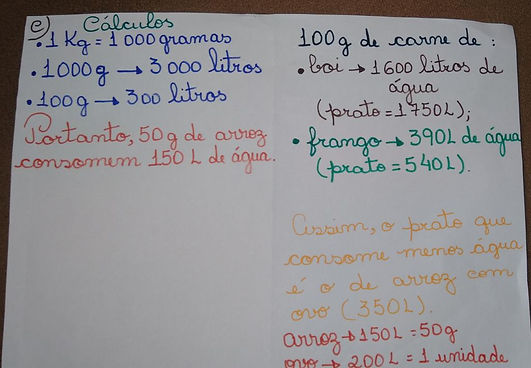 e) Cálculos
• 1 Kg = 1 000 gramas
• 1000g → 3 000 litros
• 100g → 300 litros
Portanto, 50g de arroz
consomem 150 L de água.
100g de carne de :
• boi → 1600 litros de
água
(prato = 1 750L);
• frango → 390L de água
(prato = 540L).
Assim, o prato que
consome menos água
é o de arroz com
ovo (350L).
arroz → 150L = 50g
ovo → 200L = 1 unidade